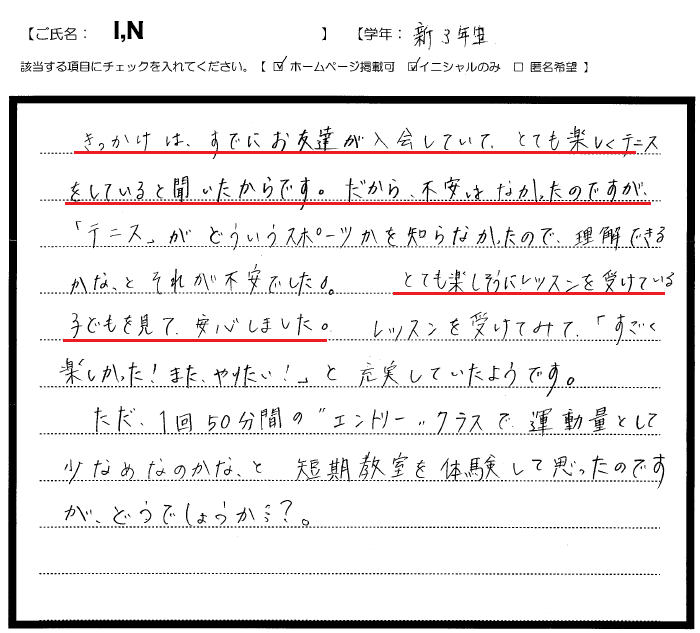 【ご氏名： I,N 】 【学年： 新３年生
該当する項目にチェックを入れてください。【 ☑ ホームページ掲載可 ☑イニシャルのみ □ 匿名希望 】
きっかけは、すでにお友達が入会していて、とても楽しくテニス
をしていると聞いたからです。だから、不安はなかったのですが、
「テニス」がどういうスポーツかを知らなかったので、理解できる
かな、とそれが不安でした。 とても楽しそうにレッスンを受けている
子どもを見て、安心しました。 レッスンを受けてみて、「すごく
楽しかった！また、やりたい！」と充実していたようです。
ただ、1回50分間の"エントリー"クラスで、運動量として
少なめなのかな、と 短期教室を体験して思ったのです
が、どうでしょうか…？。